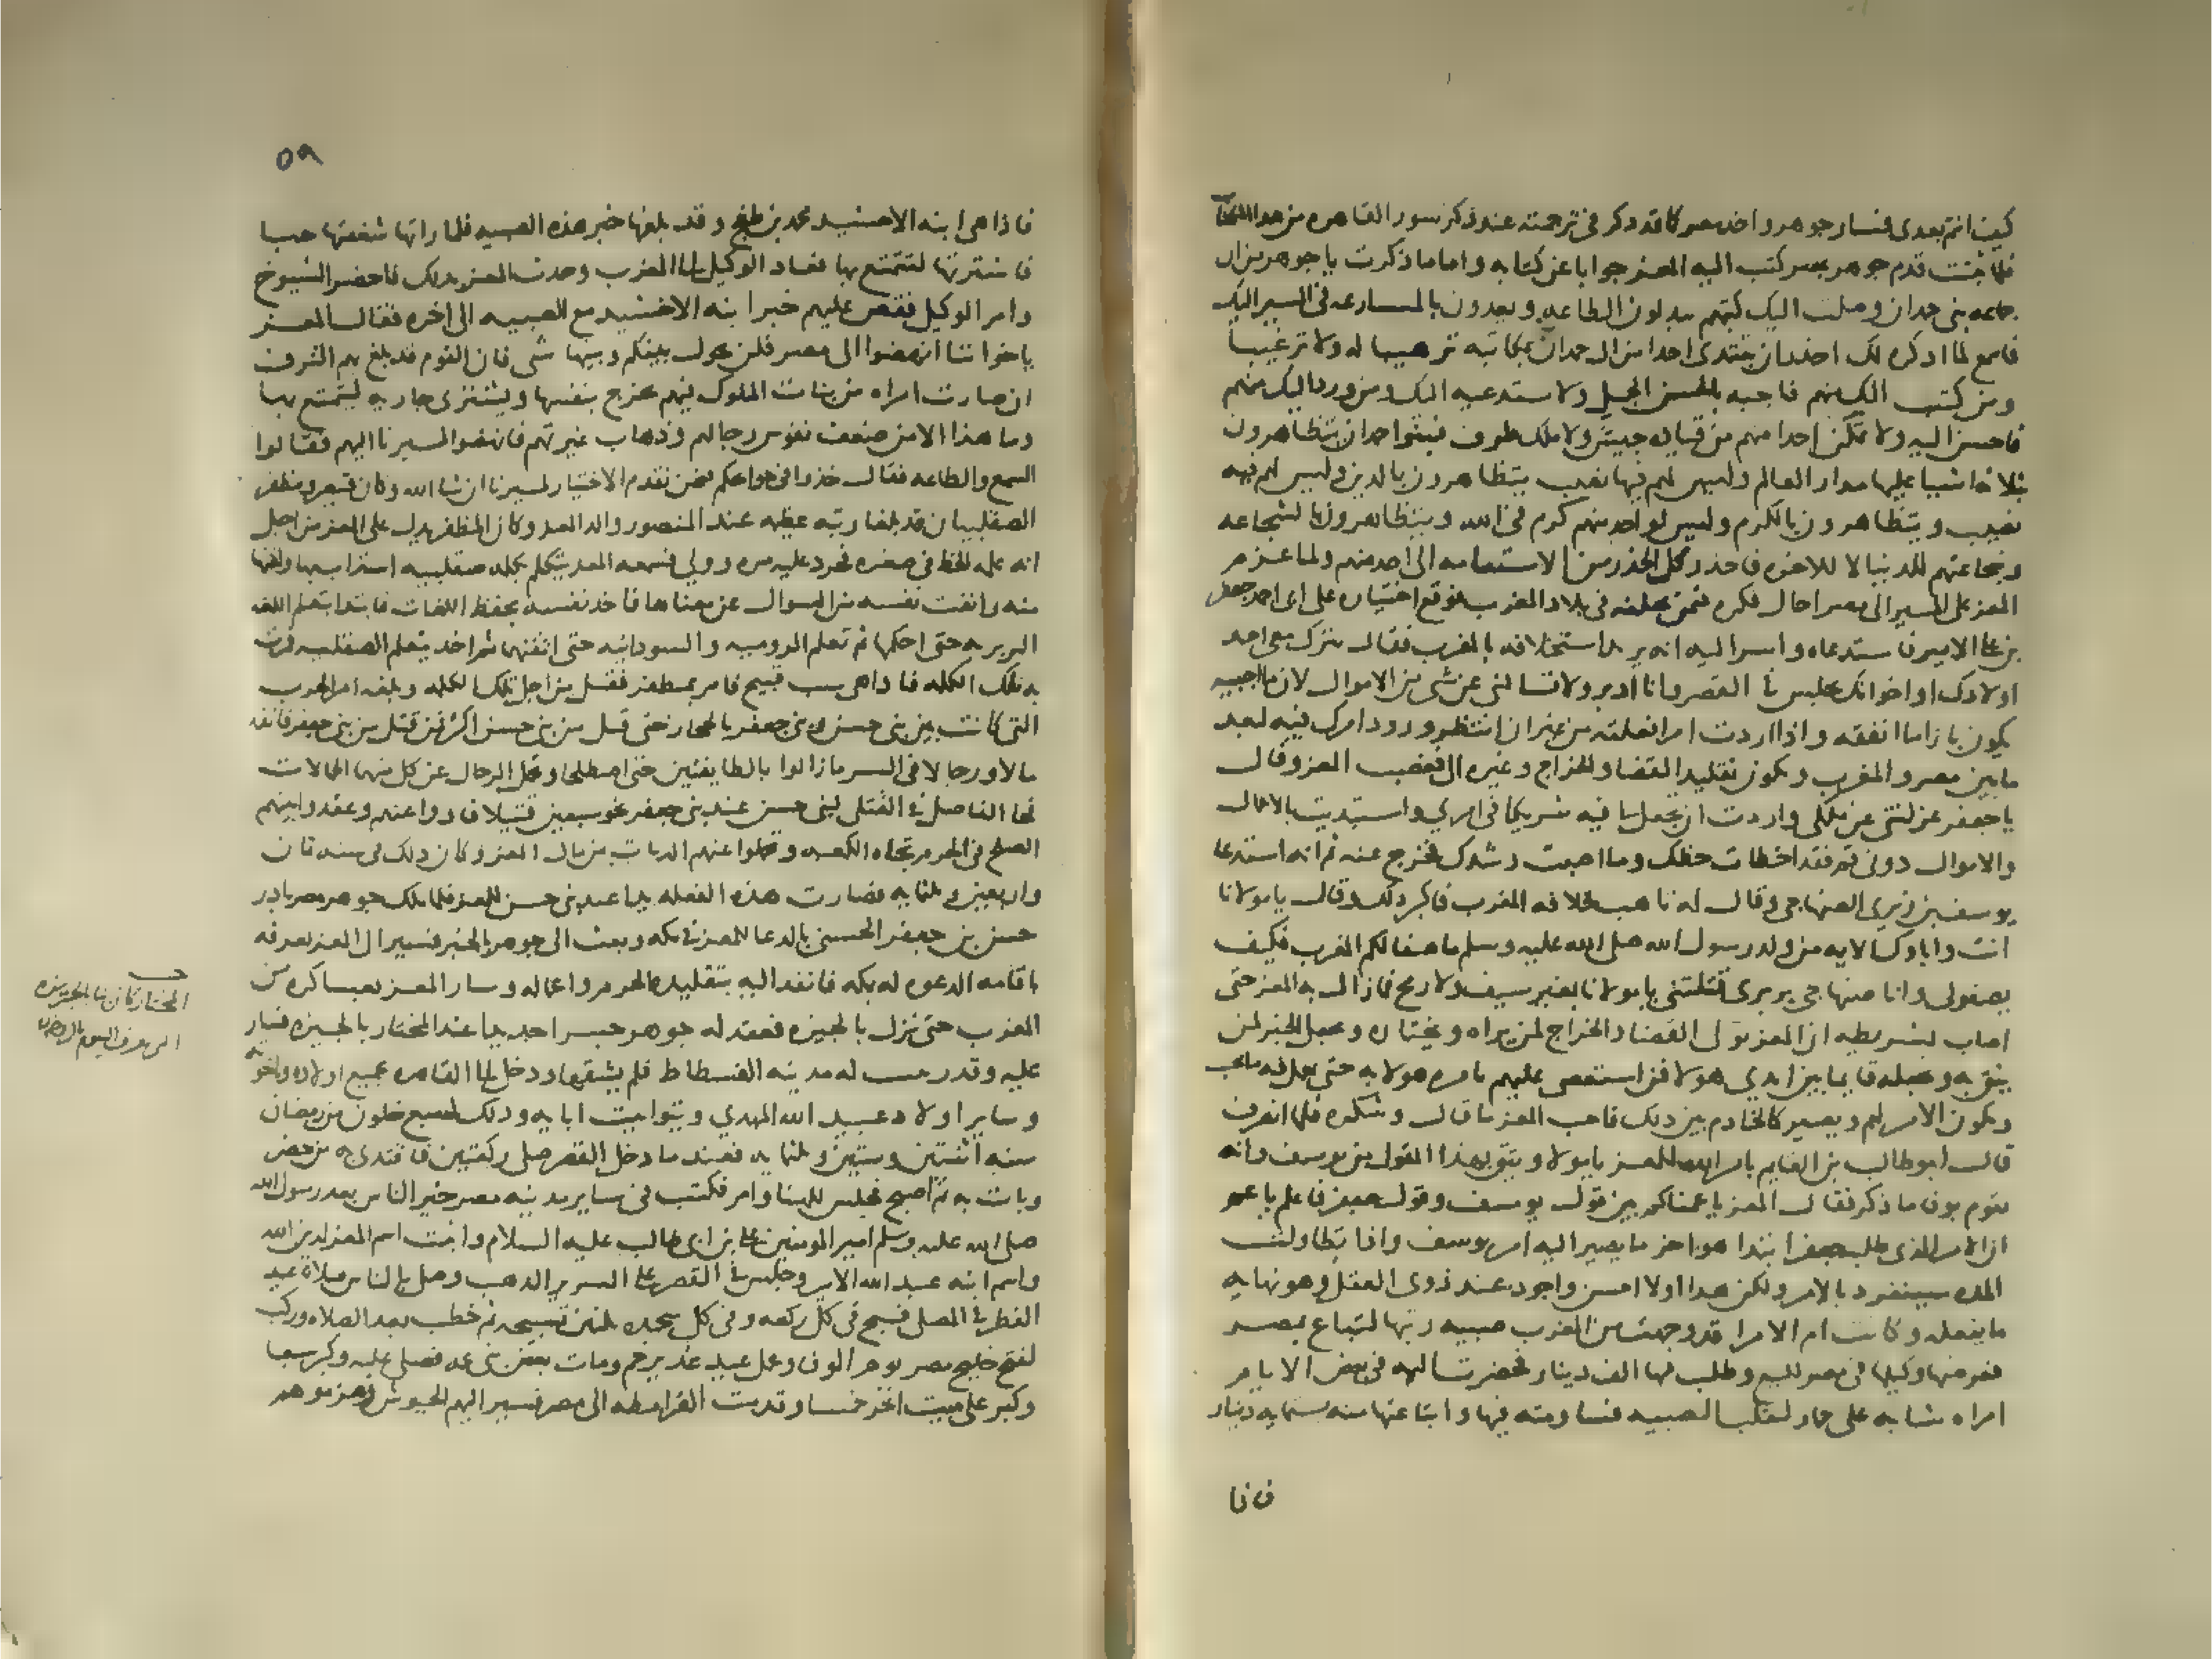 كيف انتم بعدى فسار جوهر واخد مصر كما قد دكر فى ترجمته عند ذكر سور القاهره من هدا الكتاب
فلما ثبتت قدم جوهر بمصر كتب اليه المعز جوابا عن كتابه واما ما ذكرت يا جوهر من ان
جماعه بنى حمدان وصلت اليك كتبهم يبدلون الطاعه ويعدون بالمسارعه فى المسير اليك
فاسمع لما ادكره لك احذر ان تبتدى احدا من ال حمدان بمكاتبه ترهيبا له ولا ترغيبا
ومن كتب اليك منهم فاجبه بالحسن الجميل ولا تستدعيه اليك ومن ورد اليك منهم
فاحسن اليه ولا تمكن احدا منهم من قياده جيش ولا ملك طرف فبنوا حمدان يتظاهرون
بثلاثه اشيا عليها مدار العالم وليس لهم فيها نصيب يتظاهرون بالدين وليس لهم فيه
نصيب ويتظاهرون بالكرم وليس لواحد منهم كرم فى الله ويتظاهرون بالشجاعه
وشجاعتهم للدنيا لا للاخره فاحذر كل الحذر من الاستنامه الى احد منهم ولما عزم
المعز على المسير الى مصر اجال فكره فيمن يخلفه فى بلاد المغرب فوقع اختياره على ابى احمد جعفر
بن على الامير فاستدعاه واسر اليه انه يريد استخلافه بالمغرب فقال تترك معى احد
اولادك او اخوانك يجلس فى القصر وانا ادبر ولا تسالنى عن شى من الاموال لان ما اجبيه
يكون بازا ما انفقه واذا اردت امرا فعلته من غير ان انتظر ورود امرك فيه لبعد
ما بين مصر والمغرب ويكون تقليد القضا والخراج وغيره الى فغضب المعز وقال
يا جعفر عزلتنى عن ملكى واردت ان تجعل لى فيه شريكا فى امرى واستبديت بالاعمال
والاموال دونى قم فقد اخطات حظك وما اصبت رشدك فخرج عنه ثم انه استدعا
يوسف بن زيرى الصنهاجى وقال له تاهب لخلافه المغرب فاكبر دلك وقال يا مولانا
انت واباوك الايمه من ولد رسول الله صلى الله عليه وسلم ما صفا لكم المغرب فكيف
يصفو لى وانا صنهاجى بربرى قتلتنى يا مولانا بغير سيف ولا رمح فما زال به المعز حتى
اجاب بشريطه ان المعز يولى القضا والخراج لمن يراه ويختاره ويجعل الخبر لمن
يثق به ويجعله قايما بين ايدى هولا فمن استعصى عليهم يامره هولا به حتى يعمل به ما يجب
ويكون الامر لهم ويصير كالخادم بين دلك فاحب المعز ما قال وشكره فلما انصرف
قال ابو طالب بن القايم بامر الله للمعز يا مولانا وتثق بهذا القول من يوسف وانه
يقوم بوفا ما ذكر فقال المعز يا عمنا كم بين قول يوسف وقول جعفر فاعلم يا عم
ان الامر الذى طلبه جعفر ابتدا هو اخر ما يصير اليه امر يوسف واذا تطاولت
المده سينفرد بالامر ولكن هدا اولا احسن واجود عند ذوى العقل وهو نهايه
ما يفعله وكانت ام الامرا قد وجهت من المغرب صبيه ربتها لتباع بمصر
فعرضها وكيلها فى مصر للبيع وطلب فيها الف دينار فحضرت اليه فى بعض الايام
امراه شابه على حمار لتقلب الصبيه فساومته فيها وابتاعتها منه بستمايه دينار
فاذا
٥٩
فاذا هى ابنه الاخشيد محمد بن طغج وقد بلغها خبر هذه الصبيه فلما راتها شغفتها حبا
فاشترتها لتتمتع بها فعاد الوكيل الى المغرب وحدث المعز بدلك فاحضر الشيوخ
وامر الوكيل فقص عليهم خبر ابنه الاخشيد مع الصبيه الى اخره فقال المعز
يا اخواننا انهضوا الى مصر فلن يحول بينكم وبينها شى فان القوم قد بلغ بهم الترف
ان صارت امراه من بنات الملوك فيهم تخرج بنفسها وتشترى جاريه لتتمتع بها
وما هذا الا من ضعف نفوس رجالهم وذهاب غيرتهم فانهضوا لمسيرنا اليهم فقالوا
السمع والطاعه فقال خذوا فى حوايجكم فنحن نقدم الاختيار لمسيرنا ان شا الله وكان قيصر ومظفر
الصقلبيان قد بلغا رتبه عظيمه عند المنصور والد المعز وكان المظفر يدل على المعز من اجل
انه علمه الخط فى صغره فحرد عليه مره وولى فسمعه المعز يتكلم بكلمه صقلبيه استراب بها ولقنها
منه وانفت نفسه من السوال عن معناها فاخد نفسه بحفظ اللغات فابتدا بتعلم اللغه
البربريه حتى احكمها ثم تعلم الروميه والسودانيه حتى اتقنها ثم اخد يتعلم الصقلبيه فمرت
به تلك الكلمه فاداهى سب قبيح فامر بمظفر فقتل من اجل تلك الكلمه وبلغه امر الحرب
التى كانت بين بنى حسن وبنى جعفر بالحجاز حتى قتل من بنى حسن اكثر ممن قتل من بنى جعفر فانفذ
مالا ورجالا فى السر ما زالوا بالطايفتين حتى اصطلحا وتحمل الرجال عن كل منهما الحمالات
فجا الفاضل فى القتلى لبنى حسن عند بنى جعفر نحو سبعين قتيلا فادوا عنهم وعقدوا بينهم
الصلح فى الحرم تجاه الكعبه وتحملوا عنهم الديات من مال المعز وكان دلك فى سنه ثمان
واربعين وثلثمايه فصارت هذه الفعله يدا عند بنى حسن للمعز فلما ملك جوهر مصر بادر
حسن بن جعفر الحسنى بالدعا للمعز فى مكه وبعث الى جوهر بالخبر فسير الى المعز يعرفه
باقامه الدعوه له بمكه فانفد اليه بتقليده الحرم واعماله وسار المعز بعساكره من
المغرب حتى نزل بالجيزه فعقد له جوهر جسرا جديدا عند المختار بالجيزه فسار
عليه وقد زينت له مدينه الفسطاط فلم يشقها ودخل الى القاهره بجميع اولاده واخوته
وساير اولاد عبيد الله المهدى وبتوابيت ابايه ودلك لسبع خلون من رمضان
سنه اثنتين وستين وثلثمايه فعند ما دخل القصر صلى ركعتين فاقتدى به من حضر
وبات به ثم اصبح فجلس للهنا وامر فكتب فى ساير مدينه مصر خير الناس بعد رسول الله
صلى الله عليه وسلم امير المومنين على بن ابى طالب عليه السلام واثبت اسم المعز لدين الله
واسم ابنه عبد الله الامير وجلس فى القصر على السرير الدهب وصلى بالناس صلاه عيد
الفطر فى المصلى فسبح فى كل ركعه وفى كل سجده ثلثين تسبيحه ثم خطب بعد الصلاه وركب
لفتح خليج مصر يوم الوفا وعمل عيد غدير خم ومات بعض بنى عمه فصلى عليه وكبر سبعا
وكبر على ميت اخر خمسا وقدمت القرامطه الى مصر فسير اليهم الجيوش وهزموهم
المختار كان بالجزيره
التى تعرف اليوم بالروضه